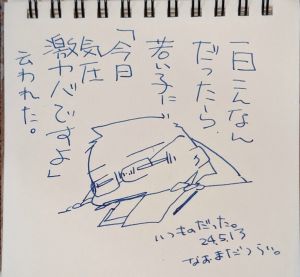 一日こんなん
だったら
若い子に
「今日
気圧
激ヤバですよ」
云われた。
いつものだった。
24.5.13
なおまだつらい。